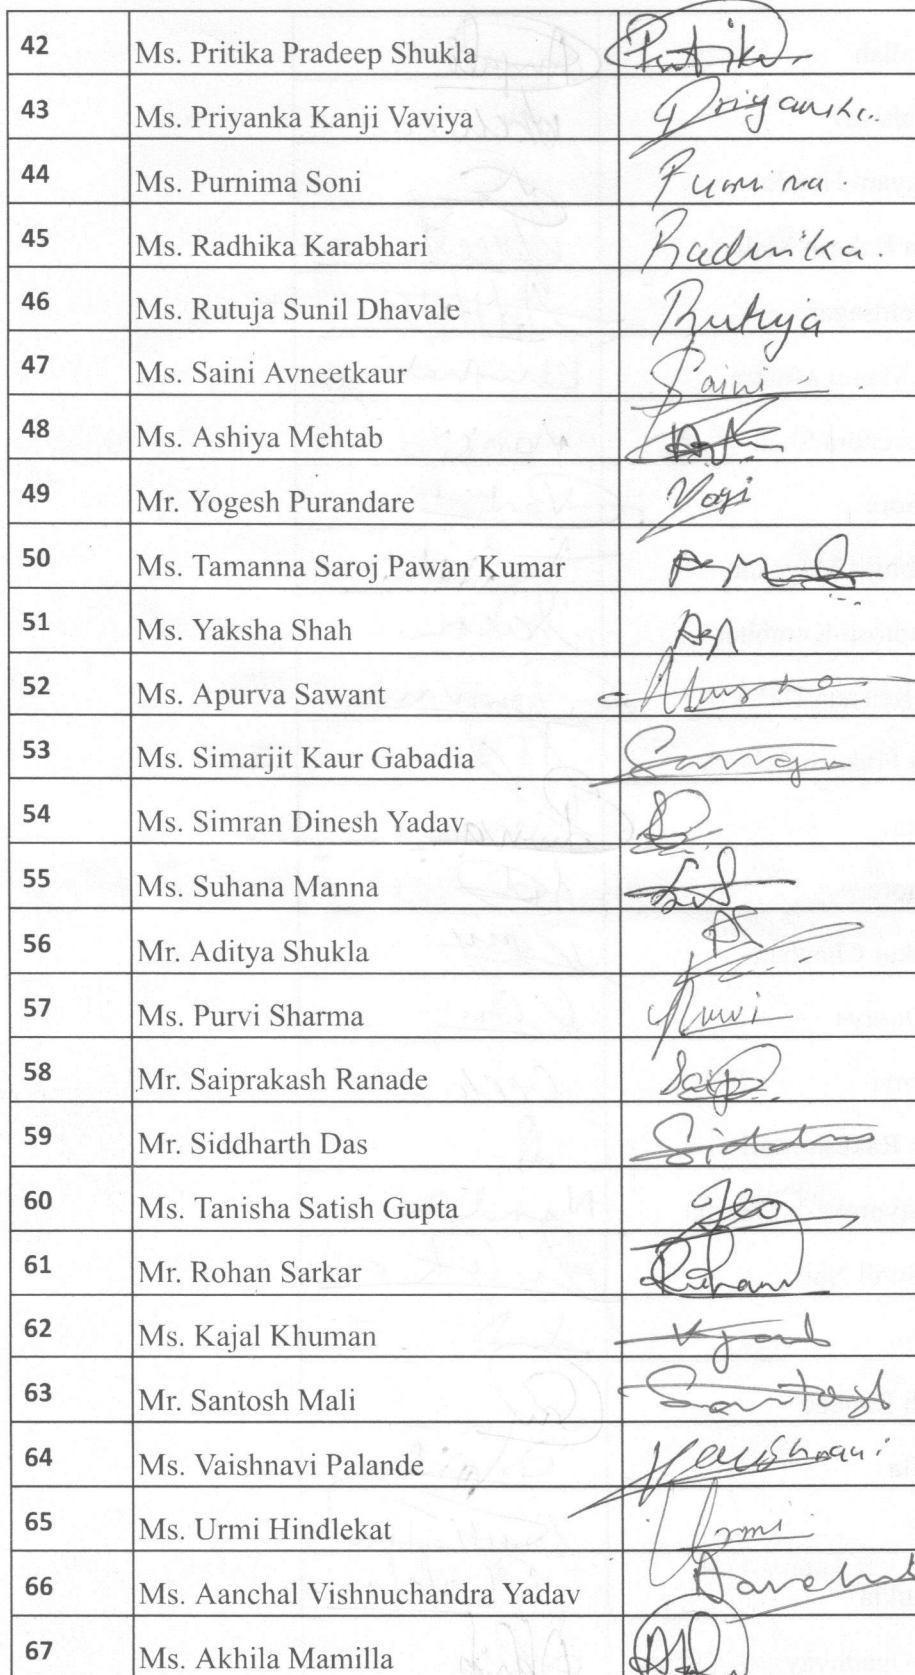 42 Ms. Pritika Pradeep Shukla Pritika
43 Ms. Priyanka Kanji Vaviya Priyanka
44 Ms. Purnima Soni Purnima
45 Ms. Radhika Karabhari Radhika.
46 Ms. Rutuja Sunil Dhavale Rutuja
47 Ms. Saini Avneetkaur Saini
48 Ms. Ashiya Mehtab
49 Mr. Yogesh Purandare Yogi
50 Ms. Tamanna Saroj Pawan Kumar
51 Ms. Yaksha Shah
52 Ms. Apurva Sawant
53 Ms. Simarjit Kaur Gabadia
54 Ms. Simran Dinesh Yadav
55 Ms. Suhana Manna
56 Mr. Aditya Shukla
57 Ms. Purvi Sharma Purvi
58 Mr. Saiprakash Ranade
59 Mr. Siddharth Das
60 Ms. Tanisha Satish Gupta
61 Mr. Rohan Sarkar Rohan
62 Ms. Kajal Khuman
63 Mr. Santosh Mali Santosh
64 Ms. Vaishnavi Palande Vaishnavi
65 Ms. Urmi Hindlekat Urmi
66 Ms. Aanchal Vishnuchandra Yadav
67 Ms. Akhila Mamilla